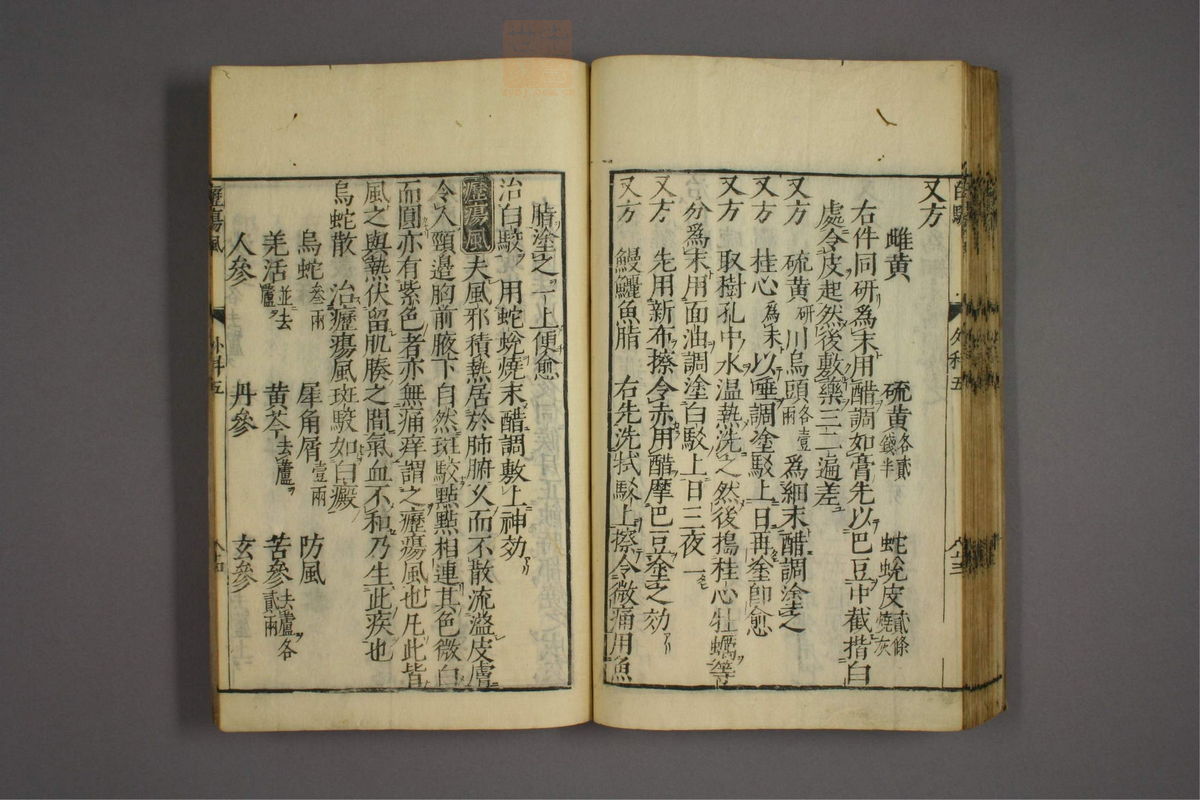 又方
雌黄 硫黄各貳錢半 蛇蛻皮貳條燒灰
右件同研爲末用醋調如膏先以巴豆中截揩白
處令皮起然後敷藥三二遍差
又方 硫黄研 川烏頭各壹兩 爲細末醋調塗之
又方 桂心爲末 以唾調塗駁上日再塗卽愈
又方 取樹孔中水温熱洗之然後搗桂心牡蠣等
分爲末用面油調塗白駁上日三夜一
又方 先用新布擦令赤用醋摩巴豆塗之効
又方 鰻鱺魚脂 右先洗拭駁上擦令微痛用魚
八十三
脂塗之一上便愈
治白駁 用蛇蛻燒末醋調敷上神効
癧瘍風 夫風邪積熱居於肺腑久而不散流溢皮膚
令人頸邊胸前腋下自然斑駁點點相連其色微白
而圓亦有紫色者亦無痛痒謂之癧瘍風也凡此皆
風之與熱伏留肌腠之間氣血不和乃生此疾也
烏蛇散 治癧瘍風斑駁如白癜
烏蛇叁兩 犀角屑壹兩 防風
羌活並去蘆 黄芩去蘆 苦參去蘆各貳兩
人參 丹參 玄參
癧瘍風 外科五 八十四